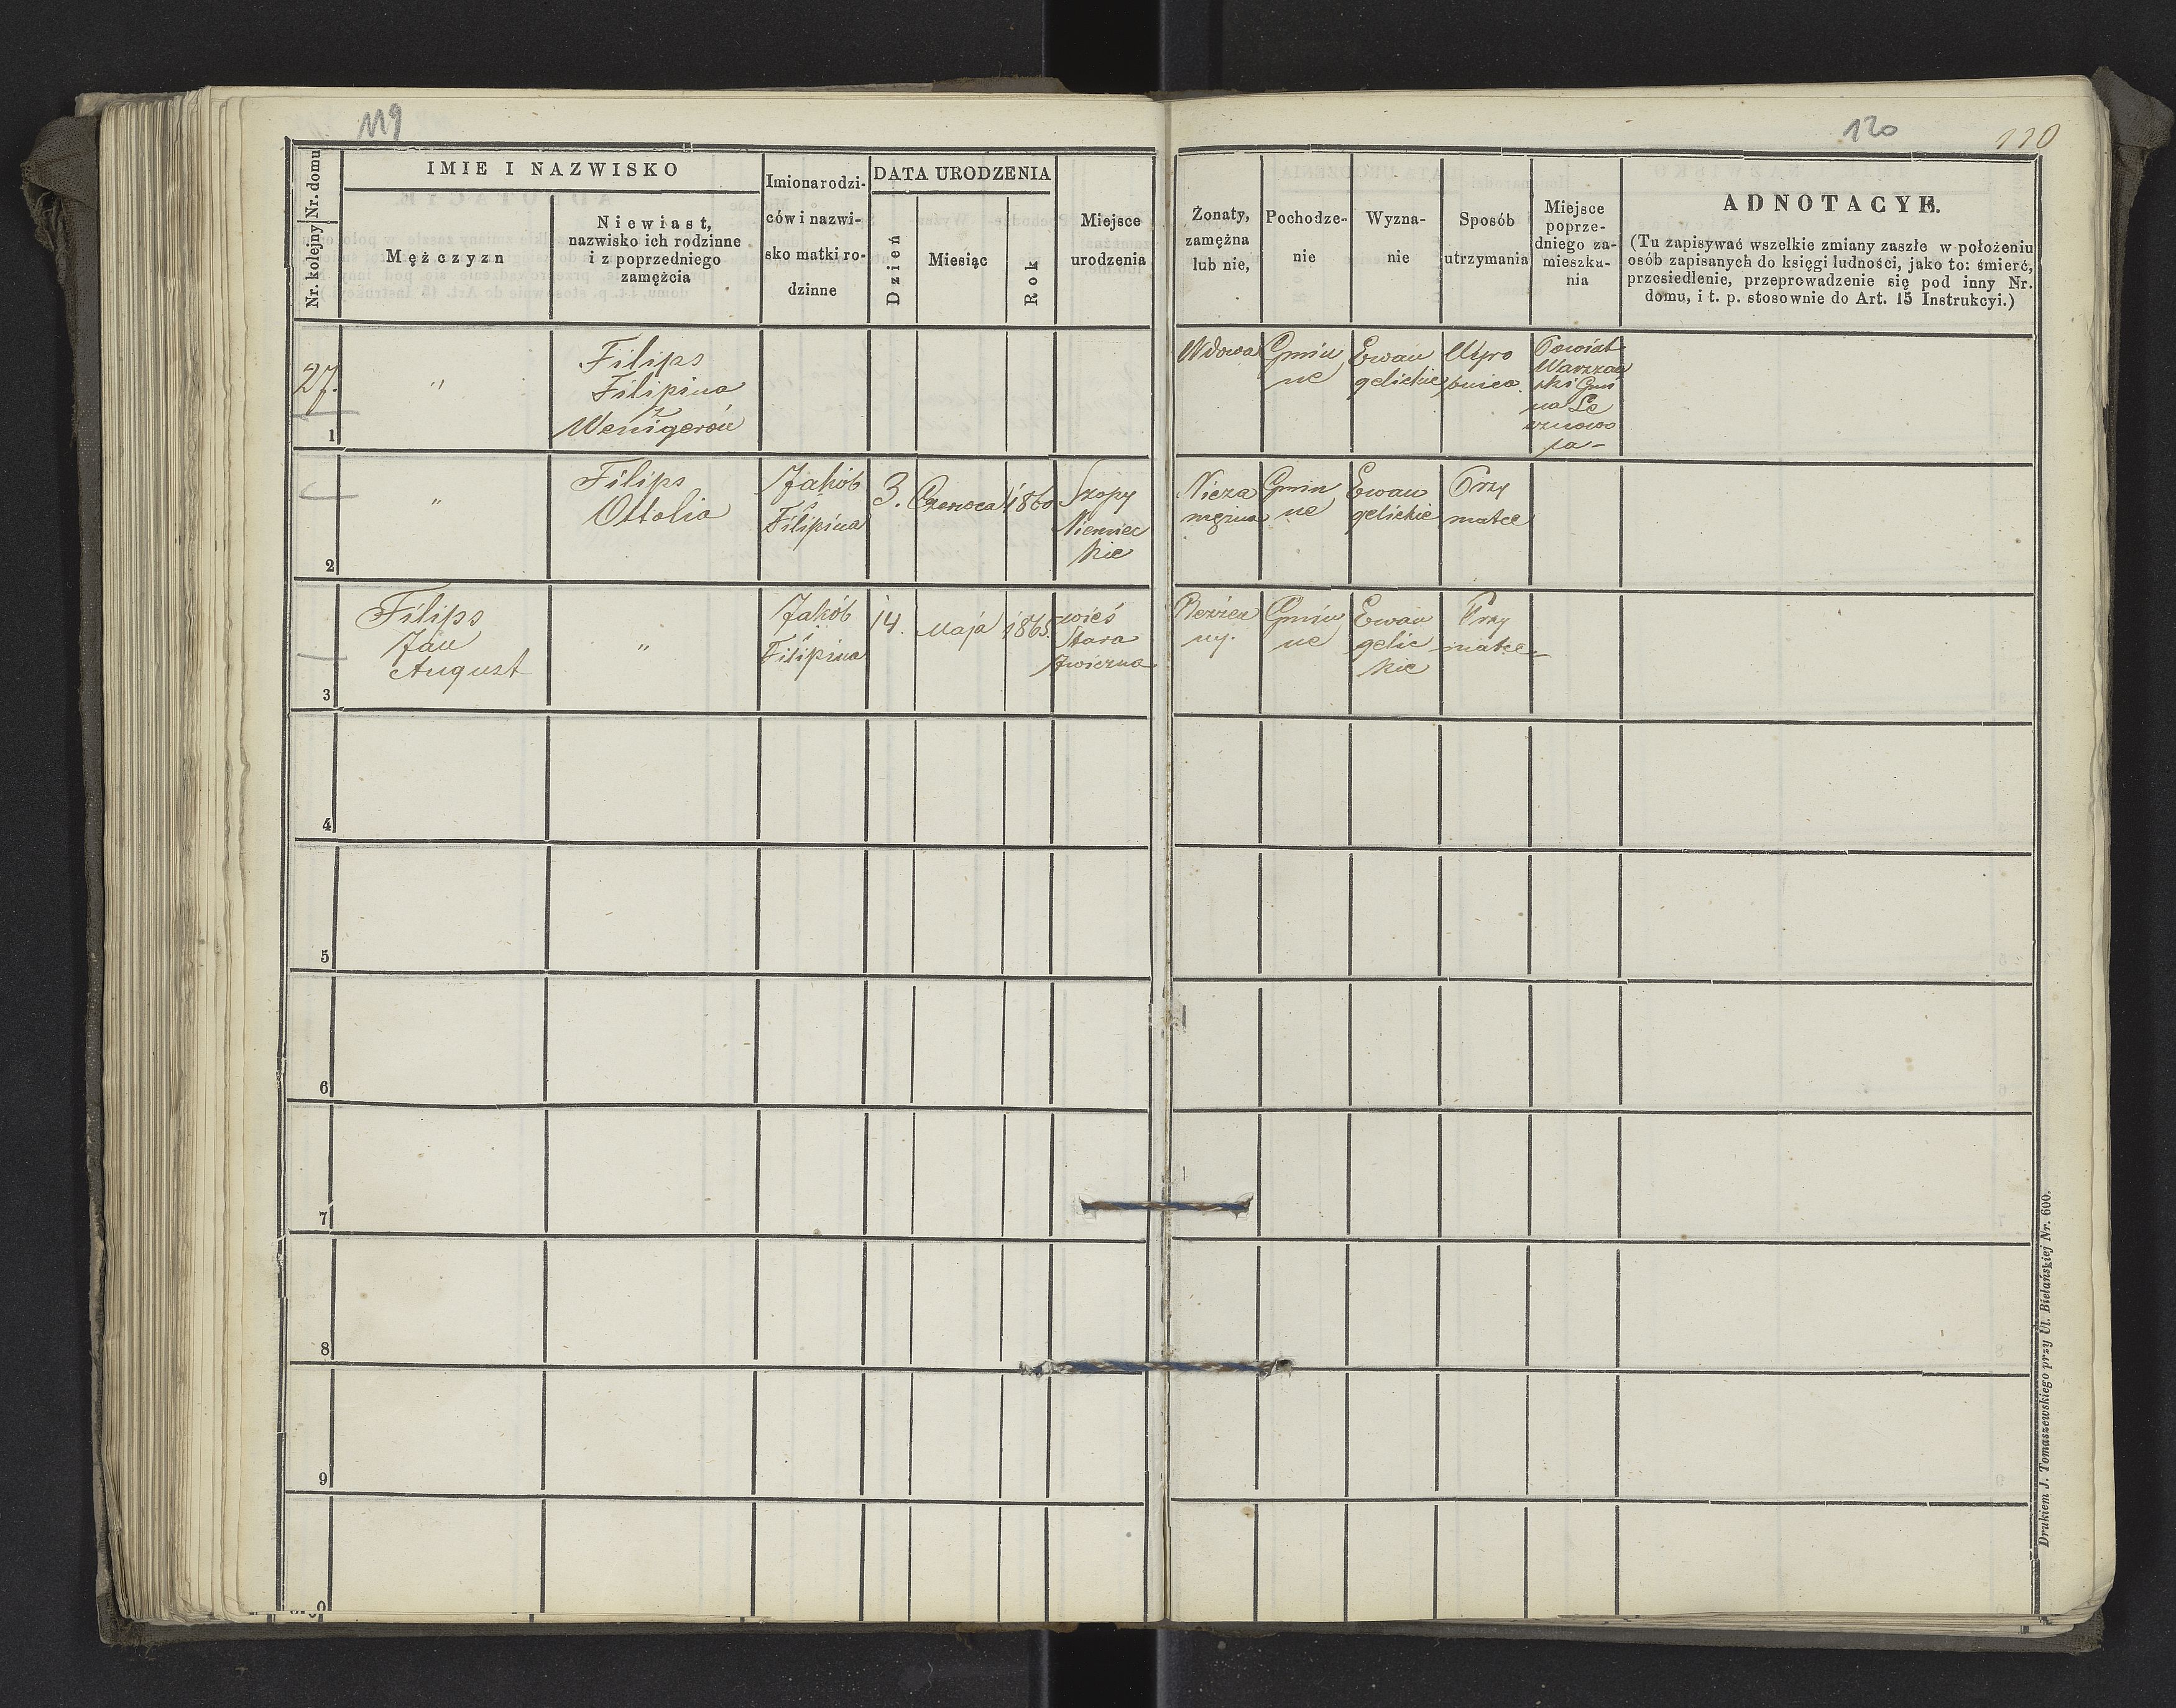 119
120
110
Nr. kolejny Nr. domu
IMIE I NAZWISKO
Mężczyzn
Niewiast,
nazwisko ich rodzinne
i z poprzedniego
zamęźcia
Imiona rodzi-
ców i nazwi-
sko matki ro-
dzinne
DATA URODZENIA
Dzień
Miesiąc
Rok
Miejsce
urodzenia
Żonaty,
zamęźna
lub nie,
Pochodze-
nie
Wyzna-
nie
Sposób
utrzymania
Miejsce
poprze-
dniego za-
mieszka-
nia
ADNOTACYE.
(Tu zapisywać wszelkie zmiany zaszłe w położeniu
osób zapisanych do księgi ludności, jako to: śmierć,
przesiedlenie, przeprowadzenie się pod inny Nr.
domu, i t. p. stosownie do Art. 15 Instrukcyi.)
27.
1
"
Filips
Filipina
z
Wenigerów
Wdowa
Gmin
ne
Ewan
gelickie
Wyro
bnica
Powiat
Warszaw
ski Gmi
na Le
sznowo
la-
2
"
Filips
Ottolia
Jakób
i
Filipina
3.
Czerwca
1860
Szopy
Niemiec
kie
Nieza
mężna
Gmin
ne
Ewan
gelickie
Przy
matce
3
Filips
Jan
August
"
Jakób
i
Filipina
14.
Maja
1865.
wieś
Stara
Iwiczna
Bezżen
ny.
Gmin
ne
Ewan
gelic
kie
Przy
matce
4
5
6
7
8
9
Drukiem J. Tomaszewskiego przy Ul. Bielańskiej Nr. 600.